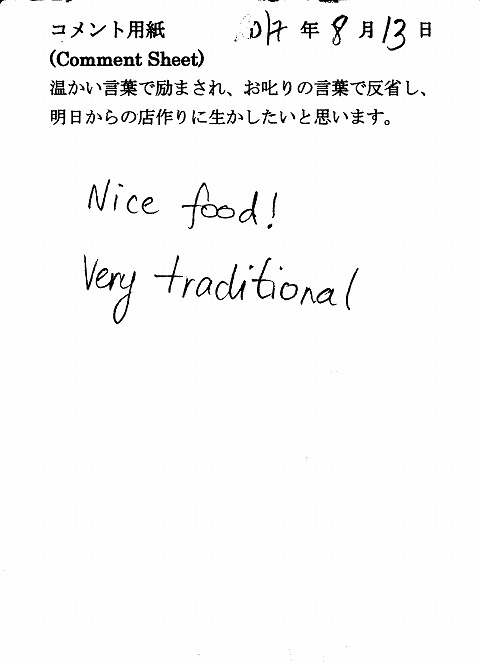 コメント用紙 2017年8月13日
(Comment Sheet)
温かい言葉で励まされ、お叱りの言葉で反省し、
明日からの店作りに生かしたいと思います。
Nice food!
Very traditional